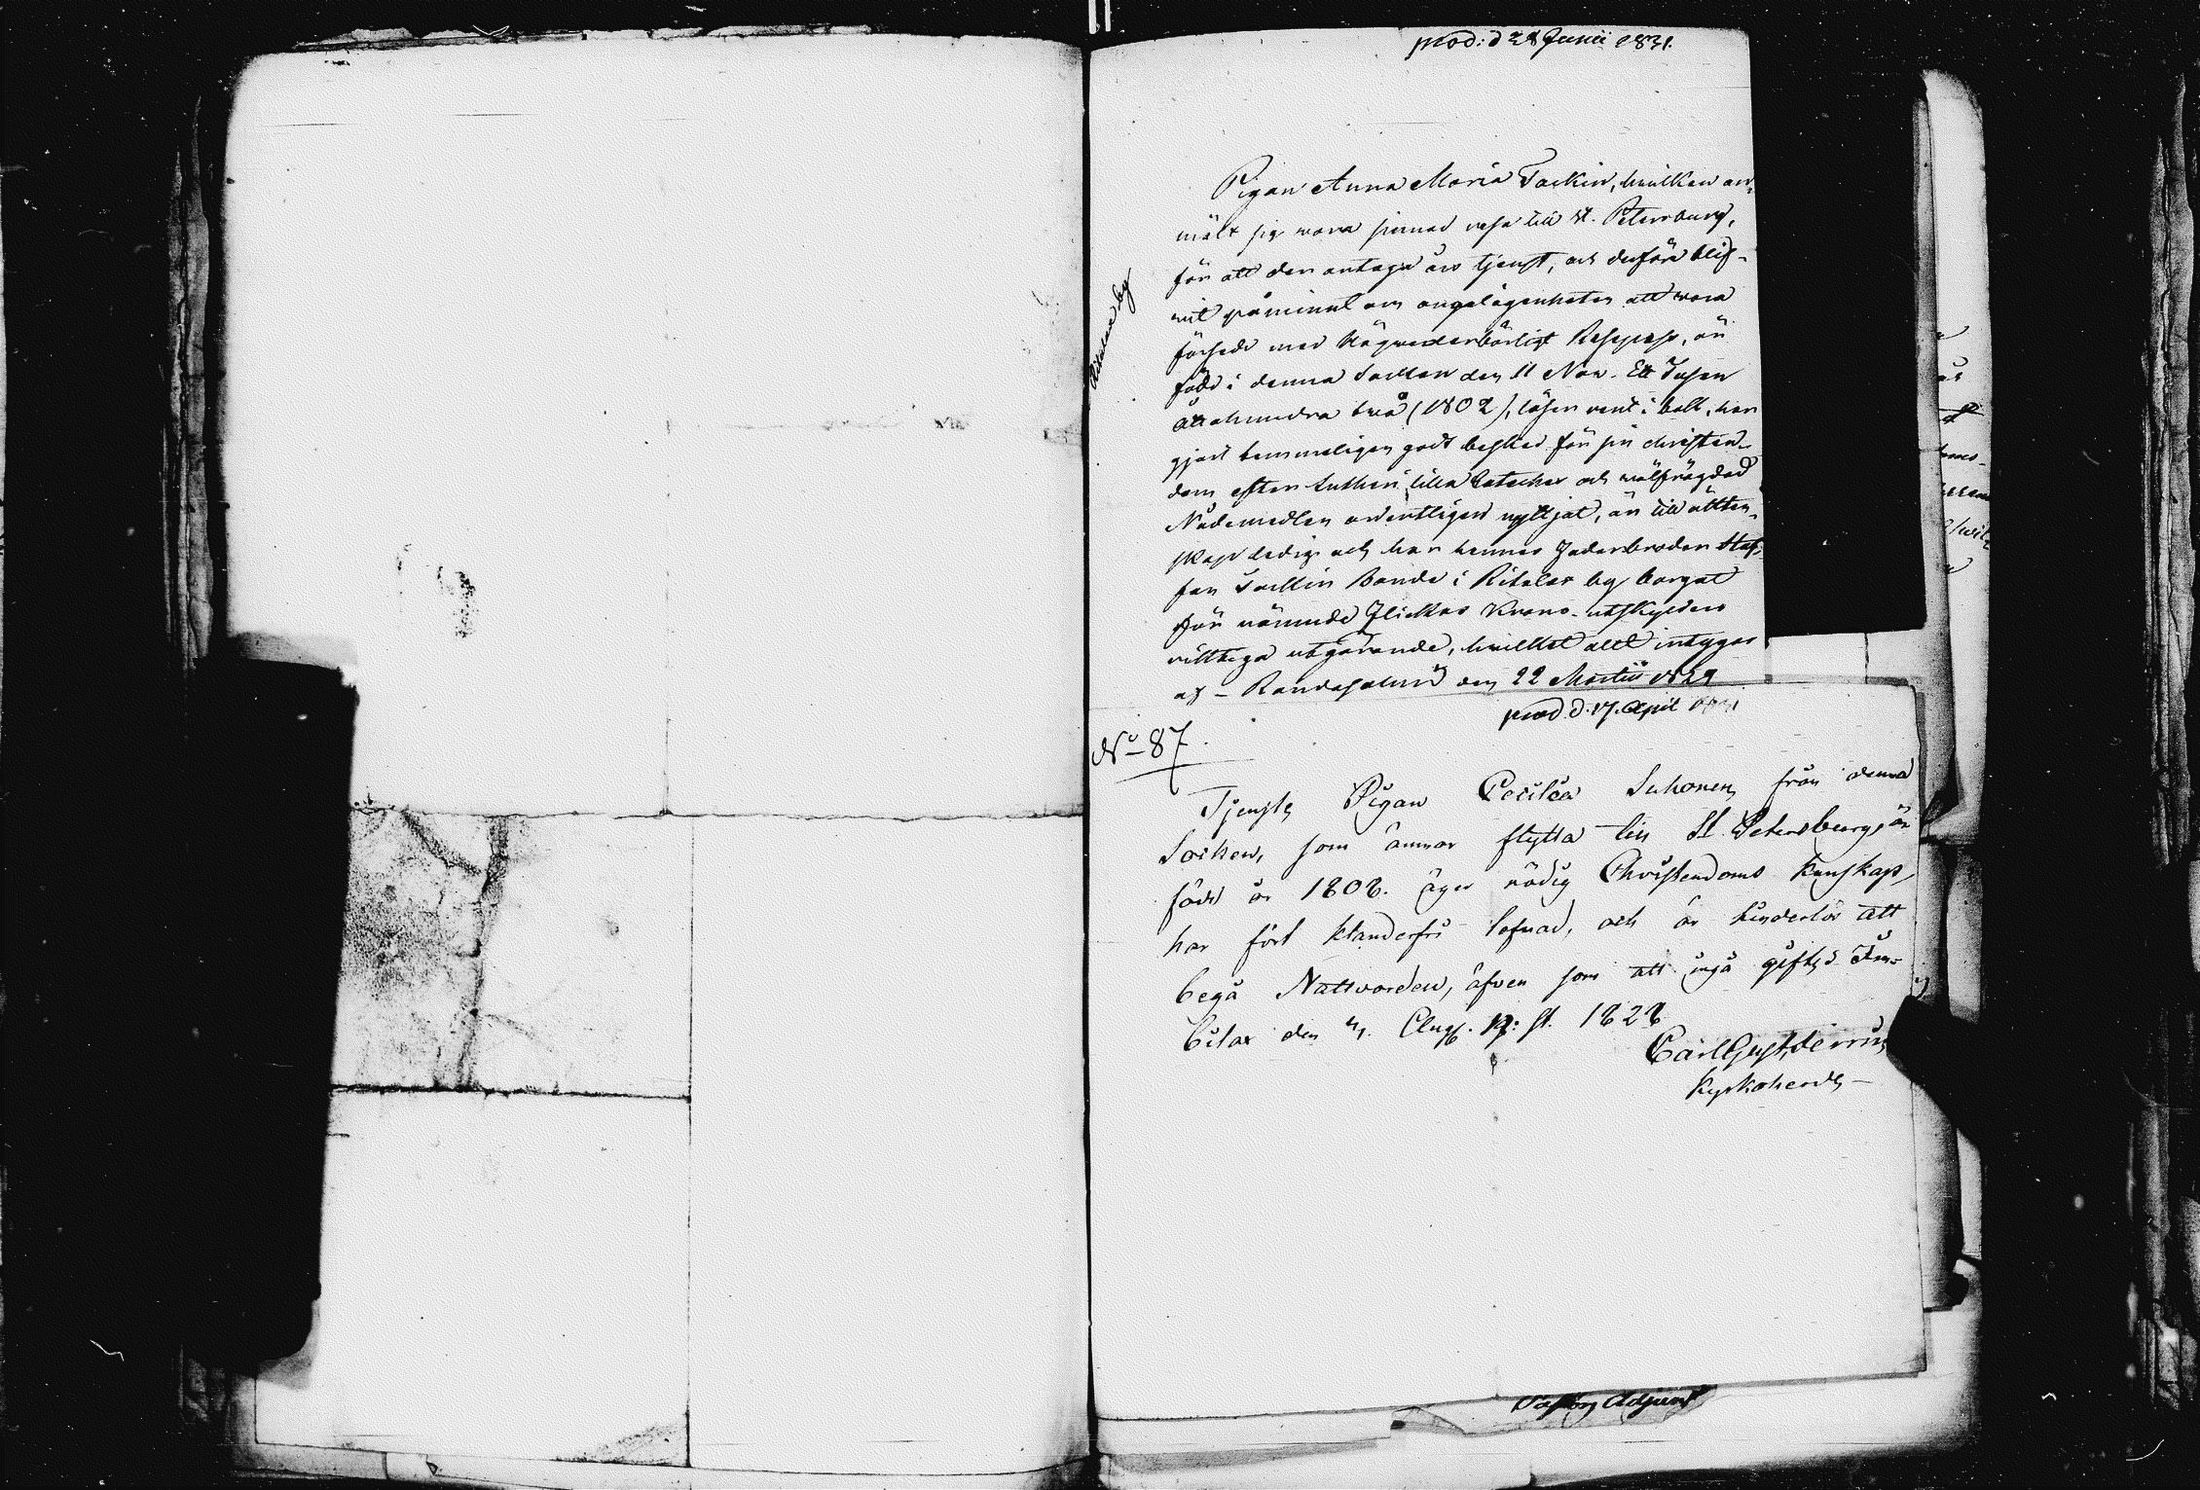 prod: d 28 Junii 1831.
Pigan Anna Maria Tackin, hvilken an-
mält sig wara sinnad resa till St. Petersburg,
för att der antaga års tjenst, och derföre blif-
wit påmint om angelägenheten att wara
försedd med Högwederbörligt Respass, är
född i denna Socken den 11 Nov. Ett Tusen
Åttahundra två (1802), läser rent i bok, har
gjort temmeligen godt besked för sin christen-
dom efter Lutheri lilla Cateches och wälfrägdad
Nådemedlen ordentligen nyttjat, är till ächten-
skap ledig och har hennes Faderbroder Staf-
fan Tackin Bonde i Ritalax by borgat
för nämnde Flickas Krono-utskylders
richtiga utgörande, hvilket allt intygas
af - Randasalmi den 22 Martii 1829
Ritalax by
prod. d. 17. April 1831
No 87.
Tjenste Pigan Cecilia Suhonen från denna
Socken, som ämnar flytta till St Petersburg, är
född år 1808. äger nödig Christendoms Kunskap,
har fört klanderfri lefnad, och är hinderlös att
begå Nattvarden, äfven som att ingå gifte.
bilax den Aug. st. 1828
Carl Gust.
Kyrkoherde
Pastors Adjunct